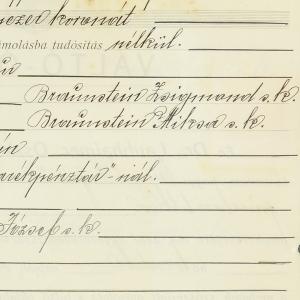 ezer koronát
ámolásba tudósítás nélkül.
Braunstein Zsigmond s. k.
Braunstein Miksa s. k.
án
arékpénztár"-nál.
József s. k.